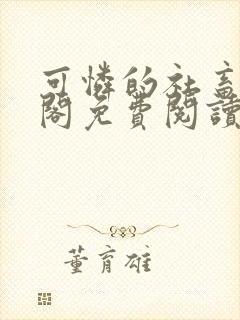 可憐的社畜
閣免費閱讀
董育雄